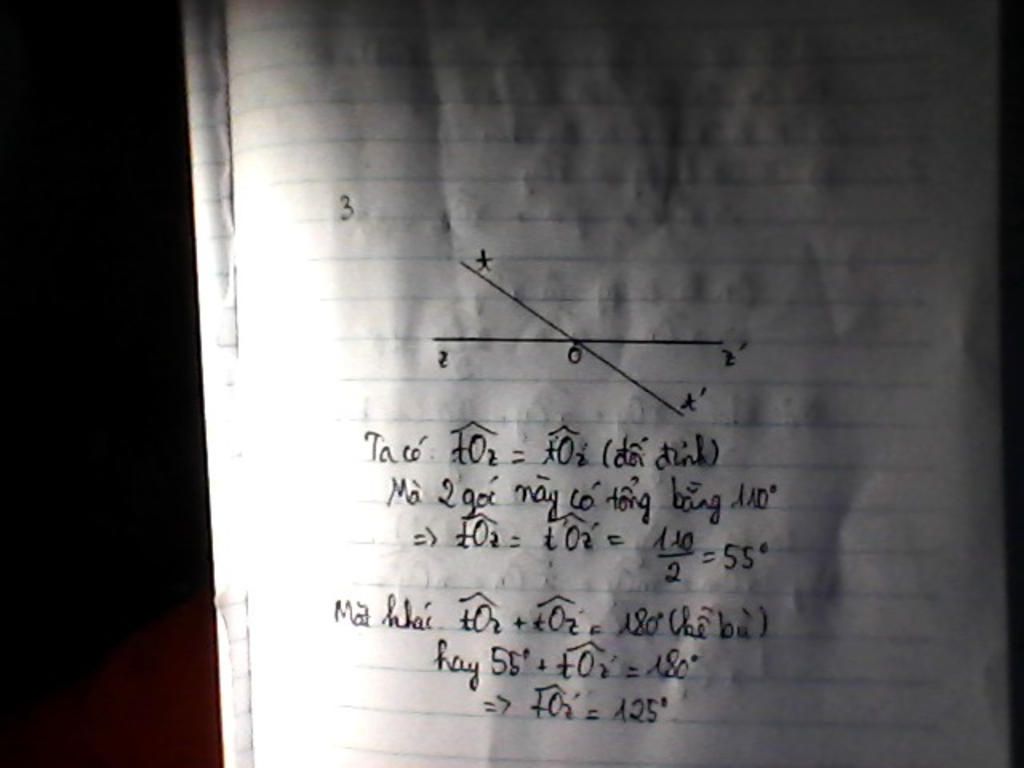 3
t
z O z'
t'
Ta có: tOz = t'Oz' (đối đỉnh)
Mà 2 góc này có tổng bằng 110°
=> tOz = t'Oz' = 110/2 = 55°
Mặt khác tOz + tOz' = 180° (kề bù)
hay 55° + tOz' = 180°
=> tOz' = 125°